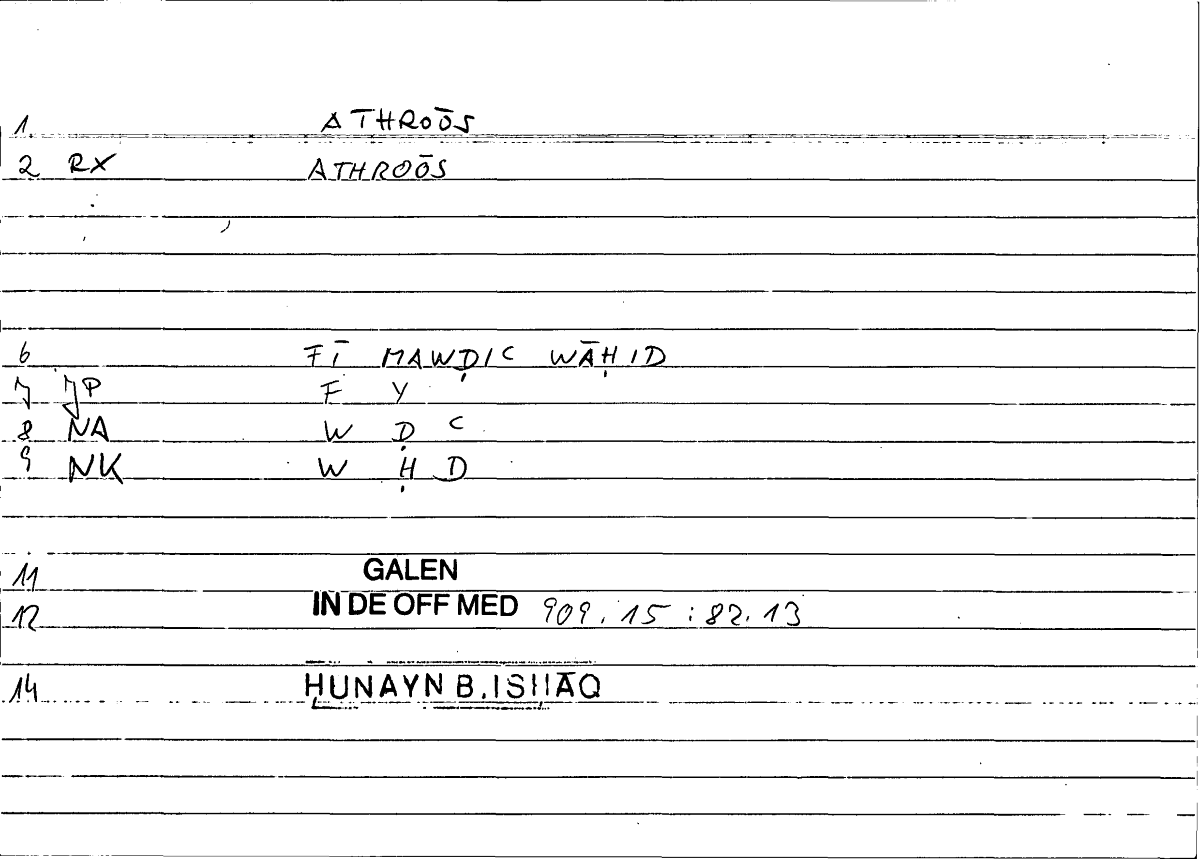 1 ATHROŌS
2 RX ATHROŌS
6 FĪ MAWḌIC WĀḤID
7 JP F Y
8 NA W Ḍ C
9 NK W Ḥ D
11 GALEN
12 IN DE OFF MED 909.15:82.13
14 ḤUNAYN B.ISḤĀQ